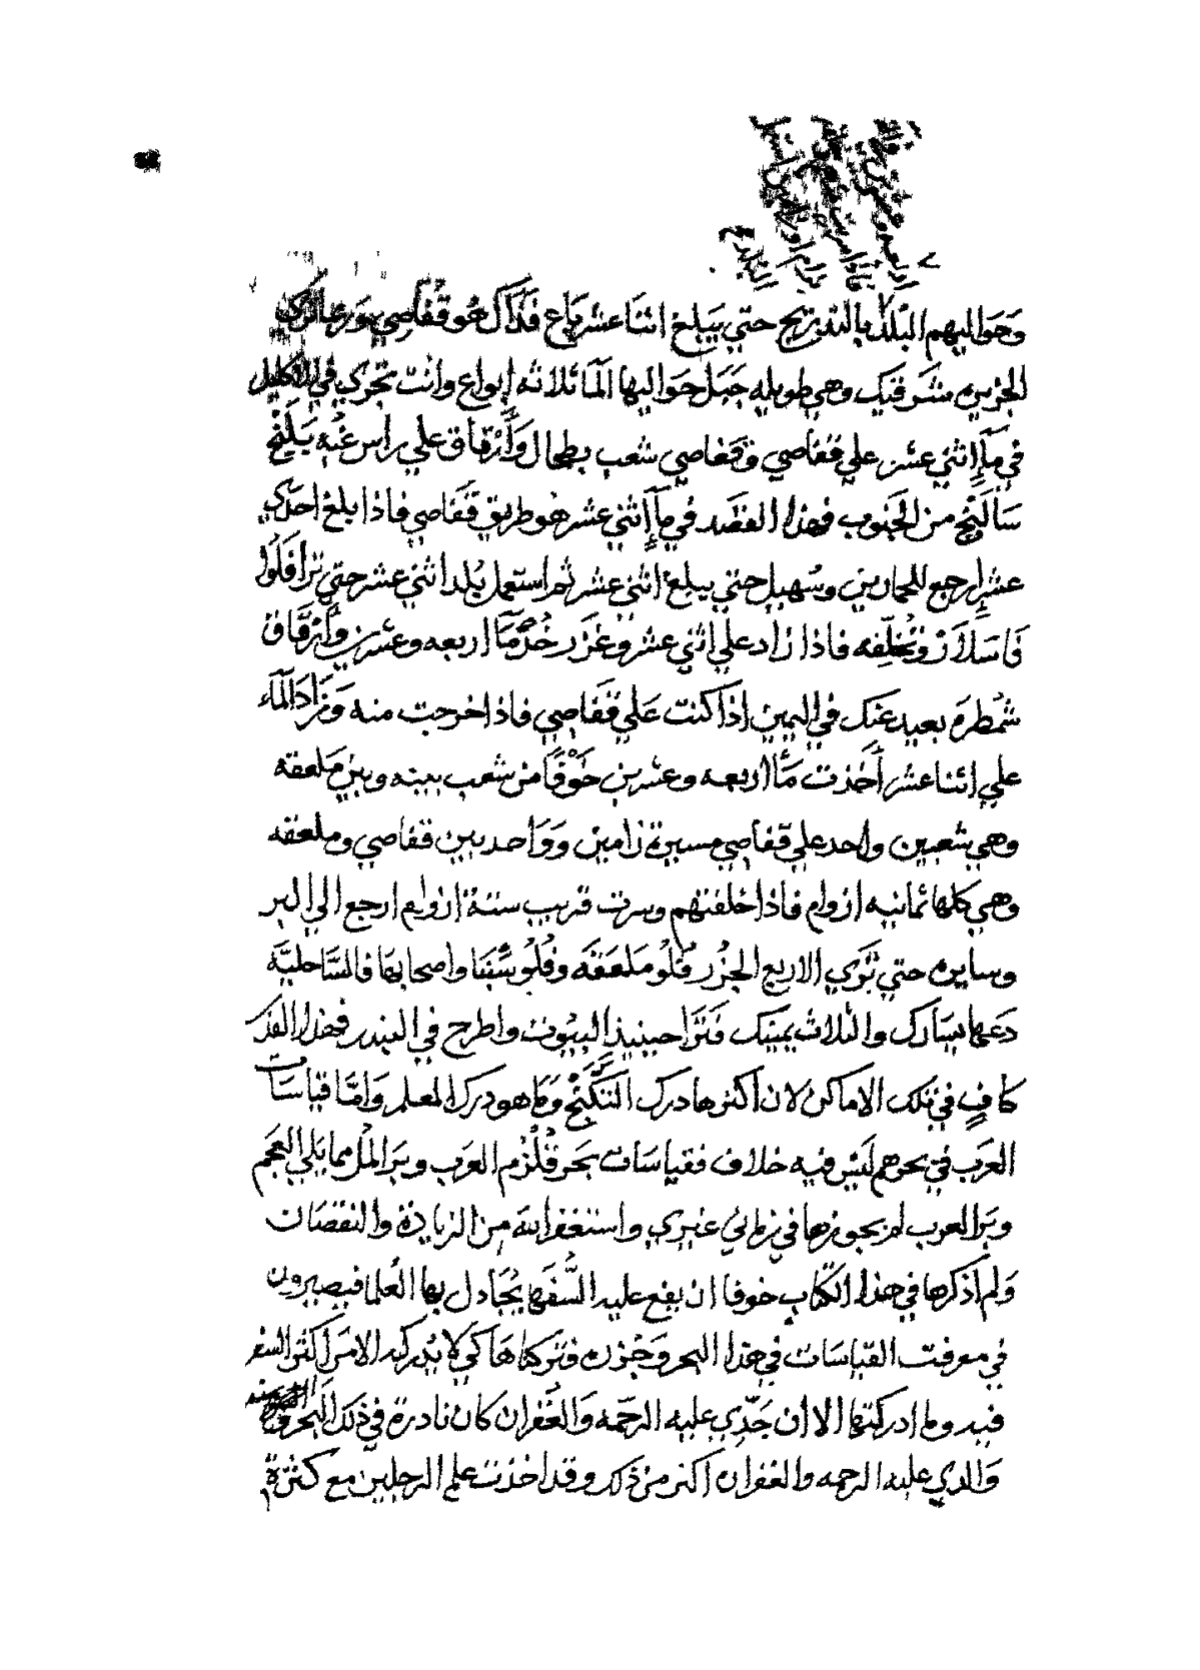 وَحَوَاليهم البُلْد بالتدريج حتي يَبلغ اثنَا عشر بَاع فَذَاك خَو قُفُاصِي
الجُزيره شَرقيك وهي طويله جَبَل حَوَاليها المَا ثلاثه ابواع وانت تجري في الاكليل
في مَآ إثني عشر علي قفاصي وقفاصي شعب بطحال وَأرقاق علي راس غُبه يَلَنج
سَالَنج من الجَنوب فهذا الفصَد في مآ إثني عشر هو طريق قَفَاصي فاذا بلغ احدَي
عشر إرجع للحمارين وسُهيل حتي يبلغ اثني عشر ثم استعمل بُلد اثني عشر حتي ترا فَلُوا
فَاسَلاَر وتُخلِّفه فاذا زاد علي اثني عشر وغزر خُذ مَا اربعه وعشرين وأرقَاق
شمُطرَه بعيد عَنك في اليمين اذا كنت عَلي قَفَاصِي فاذا خرجت منه وَزَادَ المَآء
علي اثنا عشر أخَذت مَأ اربعه وعشرين خَوْفًا من شعب بينه وبين مَلعقه
وهي شعبين واحد علي قفاصي مسيرة زامين وَوَاحد بين قفاصي وملعقه
وهي كلها ثمانيه ازوام فاذا خلفتهم وسرت قريب ستة ازوام ارجع الي البر
وسايره حتي تَرَي الاربع الجُزُر فَلُو مَلعَقَه وفُلُو سَبَتَا واصحابهَا فالسَّاحليَّه
دَعها يسَارَك والثلاث يمينك فَتَرَا حينيذ البيُوت واطرح في البندر فهذا القدر
كافٍ في تلك الاماكن لان اكثرها درك التنَكَّنج وَمَا هو درك المعلم وَامّا قياسَات
العَرَب في بحرهم لَيْس فيه خلاف فقياسَات بَحر قُلْزُم العَرَب وبَر المُل مما يَلي العَجَم
وبَر العرب لم يجوزها في زماني غيري واستغفر الله مِن الزيادة والنقصَان
وَلم أذكرها في هذا الكتَاب خوفا ان يقع عليه السُّفَهَا يُجَادل بها العُلما فيصيرون
في معرفت القيَاسَات في هذا البحر وَجُزُره فتركناهَا كي لا يُدركه الامَن أكثر السفر
فيه وما ادركتها الا ان جَدّي عليه الرحَمه وَالغفران كان نادرة في ذلك البَحر
وَالدي عليه الرحمه والغفران اكثر من ذلك وقد اخذت علم الرجلين مع كثرة